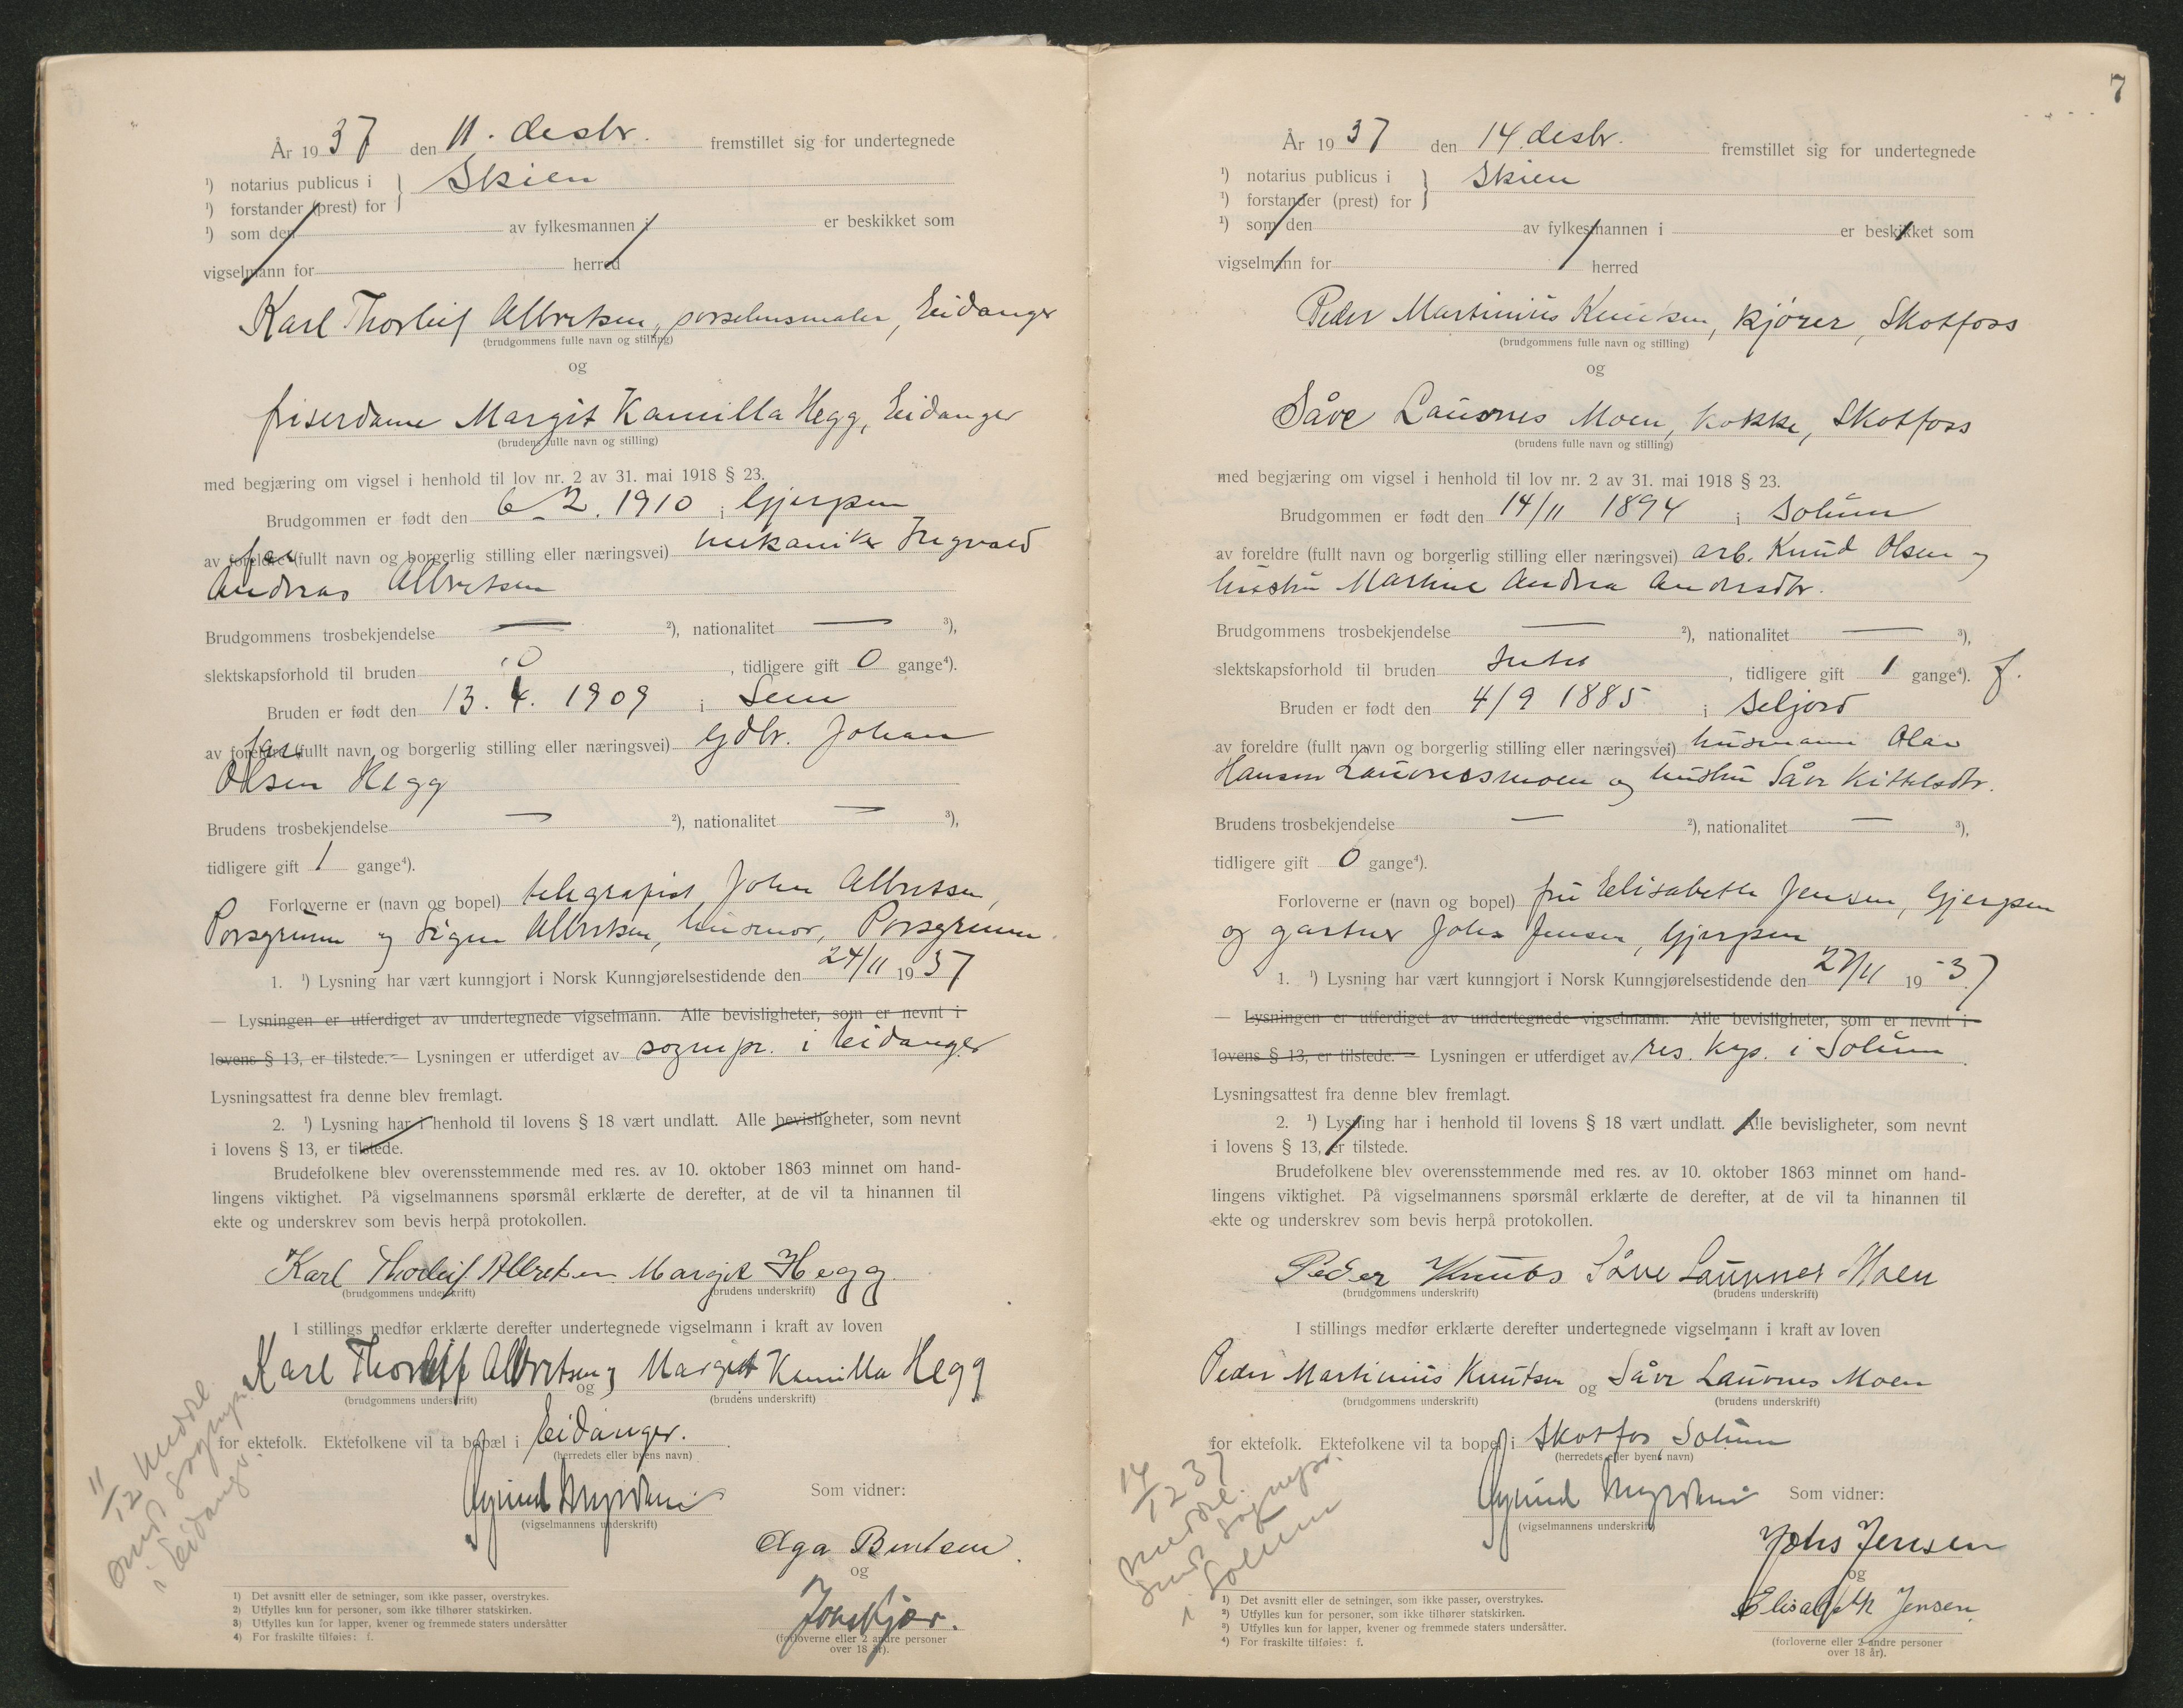 År 1937 den 11. desbr. fremstillet sig for undertegnede
¹) notarius publicus i } Skien
¹) forstander (prest) for
¹) som den av fylkesmannen i er beskikket som
vigselmann for herred
Karl Thorleif Albretsen, porselensmaler, Eidanger
(brudgommens fulle navn og stilling)
og
friserdame Margit Kamilla Hegg, Eidanger
(brudens fulle navn og stilling)
med begjæring om vigsel i henhold til lov nr. 2 av 31. mai 1918 § 23.
Brudgommen er født den 6. 2. 1910 i Gjerpen
far
av foreldre (fullt navn og borgerlig stilling eller næringsvei) mekaniker Ingvald
Andreas Albretsen
Brudgommens trosbekjendelse — ²), nationalitet — ³),
slektskapsforhold til bruden 0, tidligere gift 0 gange⁴).
Bruden er født den 13. 4. 1909 i Sem
far
av foreldre (fullt navn og borgerlig stilling eller næringsvei) Gdbr. Johan
Olsen Hegg
Brudens trosbekjendelse — ²), nationalitet — ³),
tidligere gift 1 gange⁴).
Forloverne er (navn og bopel) telegrafist John Albretsen,
Porsgrunn og Signe Albretsen, husmor, Porsgrunn
1. ¹) Lysning har vært kunngjort i Norsk Kunngjørelsestidende den 24/11 1937
— Lysningen er utferdiget av undertegnede vigselmann. Alle bevisligheter, som er nevnt i
lovens § 13, er tilstede. — Lysningen er utferdiget av sognepr. i Eidanger
Lysningsattest fra denne blev fremlagt.
2. ¹) Lysning har i henhold til lovens § 18 vært undlatt. Alle bevisligheter, som nevnt
i lovens § 13, er tilstede.
Brudefolkene blev overensstemmende med res. av 10. oktober 1863 minnet om hand-
lingens viktighet. På vigselmannens spørsmål erklærte de derefter, at de vil ta hinannen til
ekte og underskrev som bevis herpå protokollen.
Karl Thorleif Albretsen Margit Hegg
(brudgommens underskrift) (brudens underskrift)
I stillings medfør erklærte derefter undertegnede vigselmann i kraft av loven
Karl Thorleif Albretsen og Margit Kamilla Hegg
(brudgommens underskrift) (brudens underskrift)
for ektefolk. Ektefolkene vil ta bopæl i Eidanger.
(herredets eller byens navn)
11/12 meddelt
sognepr.
i Eidanger.
Som vidner:
(vigselmannens underskrift)
Aga Bentsen.
og
(forloverne eller 2 andre personer
over 18 år).
1) Det avsnitt eller de setninger, som ikke passer, overstrykes.
2) Utfylles kun for personer, som ikke tilhører statskirken.
3) Utfylles kun for lapper, kvener og fremmede staters undersåtter
4) For fraskilte tilføies: f.
7
År 1937 den 14. desbr. fremstillet sig for undertegnede
¹) notarius publicus i } Skien
¹) forstander (prest) for
¹) som den av fylkesmannen i er beskikket som
vigselmann for herred
Peder Martinius Knutsen, kjører, Skotfoss
(brudgommens fulle navn og stilling)
og
Såve Lauvnes Moen, kokke, Skotfoss
(brudens fulle navn og stilling)
med begjæring om vigsel i henhold til lov nr. 2 av 31. mai 1918 § 23.
Brudgommen er født den 14/11 1894 i Solum
av foreldre (fullt navn og borgerlig stilling eller næringsvei) arb. Knud Olsen og
hustru Martine Andrea Andersdtr.
Brudgommens trosbekjendelse — ²), nationalitet — ³),
slektskapsforhold til bruden Intet, tidligere gift 1 gange⁴). f.
Bruden er født den 4/9 1885 i Seljord
av foreldre (fullt navn og borgerlig stilling eller næringsvei) husmann Olav
Hansen Lauvnesmoen og hustru Såve Kittelsdtr.
Brudens trosbekjendelse — ²), nationalitet — ³),
tidligere gift 0 gange⁴).
Forloverne er (navn og bopel) fru Elisabeth Jensen, Gjerpen
og gartner Johs Jensen, Gjerpen
1. ¹) Lysning har vært kunngjort i Norsk Kunngjørelsestidende den 27/11 1937
— Lysningen er utferdiget av undertegnede vigselmann. Alle bevisligheter, som er nevnt i
lovens § 13, er tilstede. — Lysningen er utferdiget av res. kap. i Solum.
Lysningsattest fra denne blev fremlagt.
2. ¹) Lysning har i henhold til lovens § 18 vært undlatt. Alle bevisligheter, som nevnt
i lovens § 13, er tilstede.
Brudefolkene blev overensstemmende med res. av 10. oktober 1863 minnet om hand-
lingens viktighet. På vigselmannens spørsmål erklærte de derefter, at de vil ta hinannen til
ekte og underskrev som bevis herpå protokollen.
Peder Knuts Såve Lauvnes Moen
(brudgommens underskrift) (brudens underskrift)
I stillings medfør erklærte derefter undertegnede vigselmann i kraft av loven
Peder Martinius Knutsen og Såve Lauvnes Moen
(brudgommens underskrift) (brudens underskrift)
for ektefolk. Ektefolkene vil ta bopel i Skotfos, Solum
(herredets eller byens navn)
14/12 37
meddelt
sognepr.
i Solum
Som vidner:
(vigselmannens underskrift)
Johs Jensen
og
Elisabeth Jensen.
(forloverne eller 2 andre personer
over 18 år).
1) Det avsnitt eller de setninger, som ikke passer, overstrykes.
2) Utfylles kun for personer, som ikke tilhører statskirken.
3) Utfylles kun for lapper, kvener og fremmede staters undersåtter.
4) For fraskilte tilføies: f.